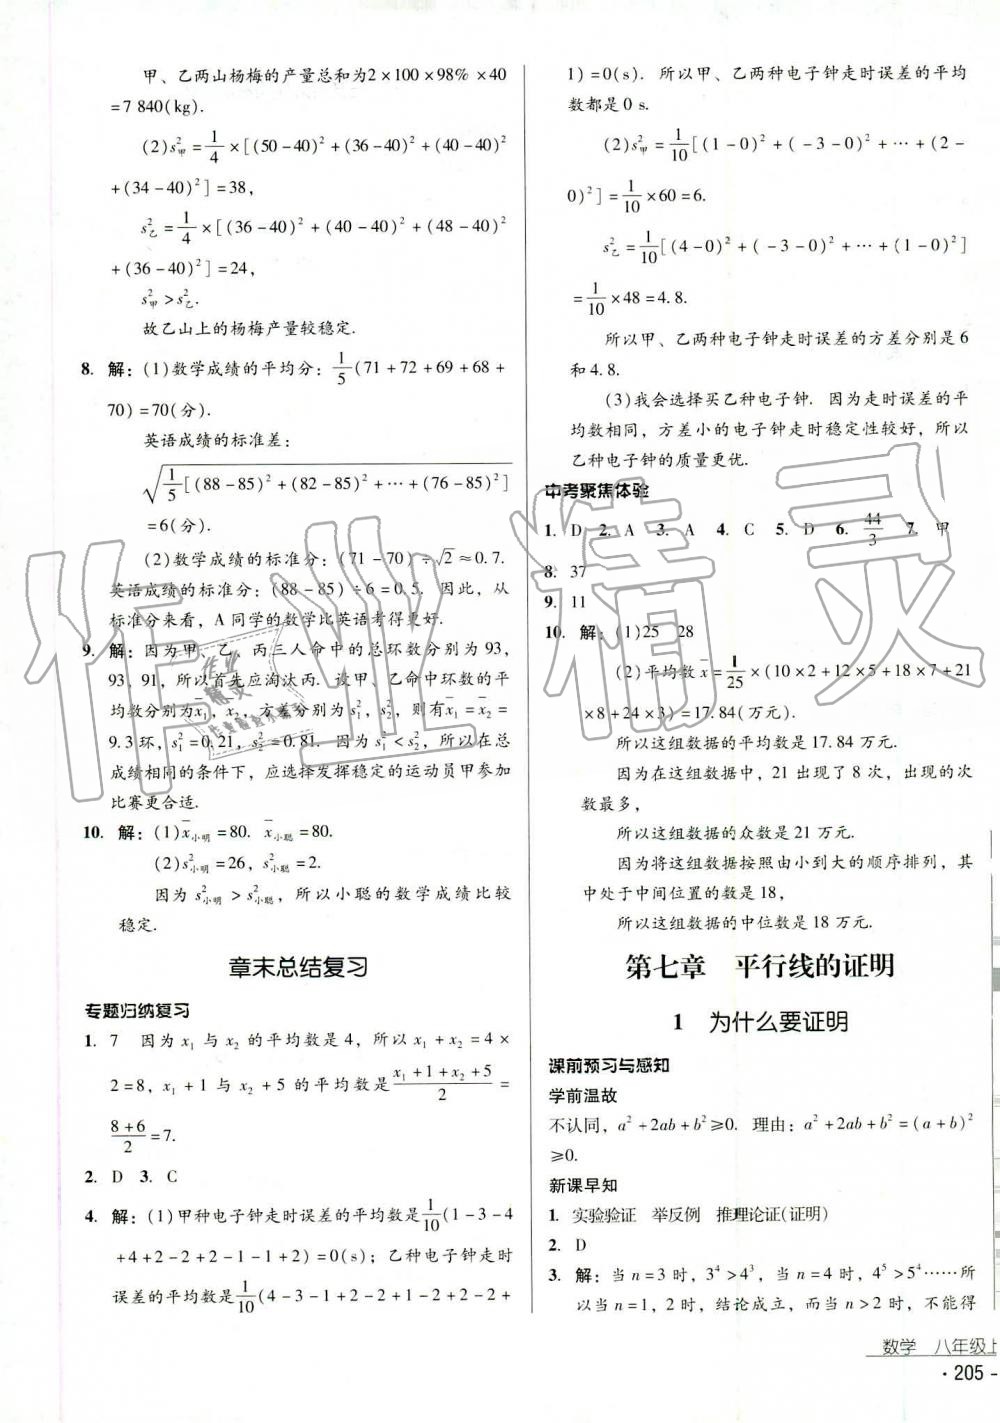 甲、乙两山杨梅的产量总和为2×100×98% ×40
=7 840(kg).
(2)s²甲=1/4×[(50-40)²+(36-40)²+(40-40)²
+(34-40)²]=38,
s²乙=1/4×[(36-40)²+(40-40)²+(48-40)²
+(36-40)²]=24,
s²甲>s²乙.
故乙山上的杨梅产量较稳定.
8. 解:(1)数学成绩的平均分:1/5(71+72+69+68+
70)=70(分).
英语成绩的标准差:
√(1/5[(88-85)²+(82-85)²+…+(76-85)²])
=6(分).
(2)数学成绩的标准分:(71-70)÷√2≈0.7.
英语成绩的标准分:(88-85)÷6=0.5. 因此,从
标准分来看, A 同学的数学比英语考得更好.
9. 解:因为甲、乙、丙三人命中的总环数分别为 93,
93,91,所以首先应淘汰丙. 设甲、乙命中环数的平
均数分别为x̄₁,x̄₂,方差分别为s₁²,s₂²,则有x̄₁=x̄₂=
9.3 环,s₁²=0.21,s₂²=0.81. 因为s₁²<s₂²,所以在总
成绩相同的条件下,应选择发挥稳定的运动员甲参加
比赛更合适.
10. 解:(1)x̄小明=80. x̄小聪=80.
(2)s²小明=26, s²小聪=2.
因为 s²小明>s²小聪,所以小聪的数学成绩比较
稳定.
章末总结复习
专题归纳复习
1. 7 因为 x₁ 与 x₂ 的平均数是 4,所以 x₁+x₂=4×
2=8,x₁+1 与 x₂+5 的平均数是(x₁+1+x₂+5)/2=
(8+6)/2=7.
2. D 3. C
4. 解:(1)甲种电子钟走时误差的平均数是1/10(1-3-4
+4+2-2+2-1-1+2)=0(s);乙种电子钟走时
误差的平均数是1/10(4-3-1+2-2+1-2+2-2+
1)=0(s). 所以甲、乙两种电子钟走时误差的平均
数都是0 s.
(2)s²甲=1/10[(1-0)²+(-3-0)²+…+(2-
0)²]=1/10×60=6.
s²乙=1/10[(4-0)²+(-3-0)²+…+(1-0)²]
=1/10×48=4.8.
所以甲、乙两种电子钟走时误差的方差分别是6
和4.8.
(3)我会选择买乙种电子钟. 因为走时误差的平
均数相同,方差小的电子钟走时稳定性较好,所以
乙种电子钟的质量更优.
中考聚焦体验
1. D 2. A 3. A 4. C 5. D 6. 44/3 7. 甲
8. 37
9. 11
10. 解:(1)25 28
(2)平均数 x̄=1/25×(10×2+12×5+18×7+21
×8+24×3)=17.84(万元).
所以这组数据的平均数是 17.84 万元.
因为在这组数据中,21 出现了 8 次,出现的次
数最多,
所以这组数据的众数是 21 万元.
因为将这组数据按照由小到大的顺序排列,其
中处于中间位置的数是 18,
所以这组数据的中位数是 18 万元.
第七章 平行线的证明
1 为什么要证明
课前预习与感知
学前温故
不认同,a²+2ab+b²≥0. 理由:a²+2ab+b²=(a+b)²
≥0.
新课早知
1. 实验验证 举反例 推理论证(证明)
2. D
3. 解:当 n=3 时,3⁴>4³,当 n=4 时,4⁵>5⁴……所
以当 n=1,2 时,结论成立,而当 n>2 时,不能得
数学 八年级上
· 205 -
作业精灵